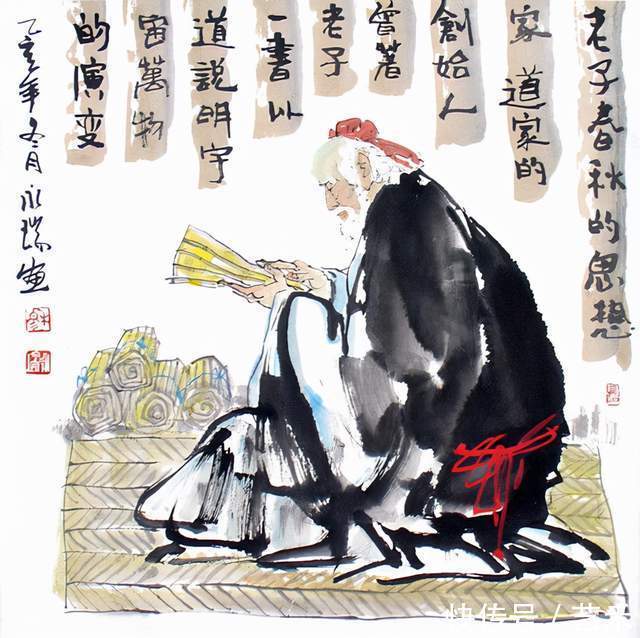 老子春秋的思想
家 道家的
創始人
曾著
老子
一書以
道說明宇
宙萬物
的演变
乙亥年冬月永瑞画
快传号 /